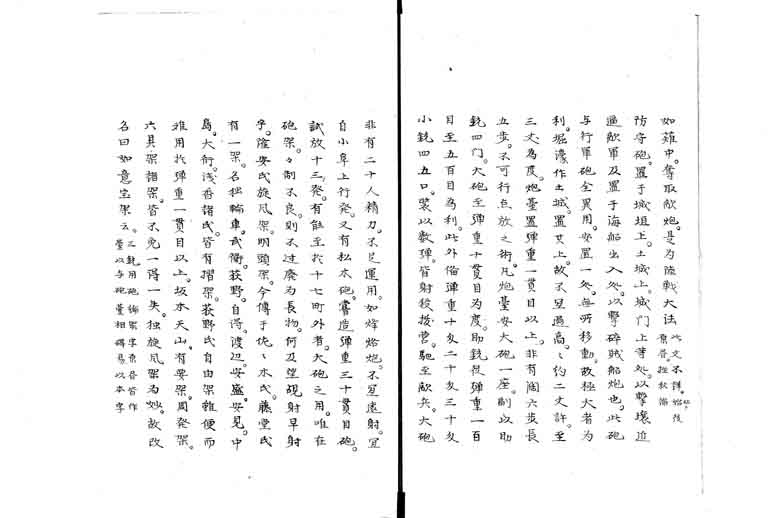 如薙中。奪取敵炮。是為陸戰大法
此文不詳。始終
意營。挫敵滿
防守砲。置于城垣上。土城上。城門上等処。以擊環迫
逼敵軍及置于海船出入処。以擊碎賊船炮也。此砲
与行軍砲全異用。安置一処。無所移動。故極大者為
利。堀濠作土城。置其上。故不足過高。々約二丈許。至
三丈為度。炮臺置彈重一貫目以上。非有闊六步長
五步。不可行点放之術。凡炮臺安大砲一座。副以助
銃四門。大砲至彈重十貫目為度。助銃是彈重一百
目至五百目為利。此外備彈重十匁二十匁三十匁
小銃四五口。裝以數彈。皆射殺拔營。馳至敵兵。大砲
非有二十人精力。不足運用。如烽熕炮。不足遠射。宜
自小阜上行発。又有松木砲。嘗造彈重三十貫目砲。
試放十三発。有能至於十七町外者。大砲之用。唯在
砲架。々制不良。則不过廃為長物。何及望硯射旱射
乎。隆安氏旋風架。明頭架。今傳于佐々木氏。藤堂氏
有一架。名独輪車。武衛荻野。自得渡辺。安盛。安見。中
島。大衍。浅香諸氏。皆有摺架。荻野氏自由架雖便而
难用於彈重一貫目以上。坂本天山。有要架。周発架。
六具架諸架。皆不免一得一失。独旋凡架為妙。故改
名曰如意宝架云。
三銃用砲
臺以与砲臺相碍。易以本字